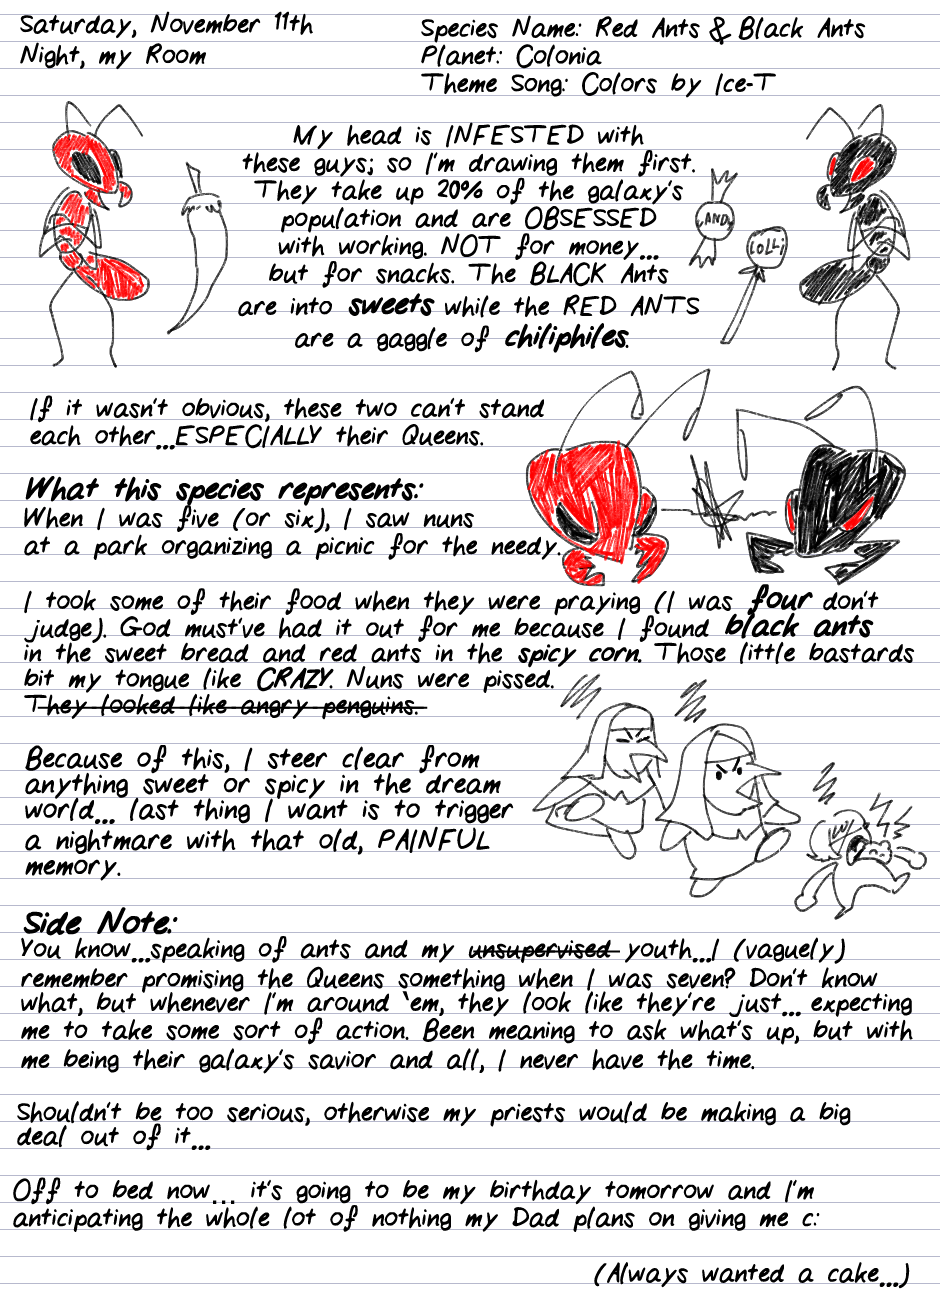 Saturday, November 11th
Night, my Room
Species Name: Red Ants & Black Ants
Planet: Colonia
Theme Song: Colors by Ice-T
My head is INFESTED with
these guys; so I'm drawing them first.
They take up 20% of the galaxy's
population and are OBSESSED
with working. NOT for money...
but for snacks. The BLACK Ants
are into sweets while the RED ANTS
are a gaggle of chiliphiles.
AND
LOLLi
If it wasn't obvious, these two can't stand
each other...ESPECIALLY their Queens.
What this species represents:
When I was five (or six), I saw nuns
at a park organizing a picnic for the needy.
I took some of their food when they were praying (I was four don't
judge). God must've had it out for me because I found black ants
in the sweet bread and red ants in the spicy corn. Those little bastards
bit my tongue like CRAZY. Nuns were pissed.
They looked like angry penguins.
Because of this, I steer clear from
anything sweet or spicy in the dream
world... last thing I want is to trigger
a nightmare with that old, PAINFUL
memory.
Side Note:
You know...speaking of ants and my unsupervised youth...I (vaguely)
remember promising the Queens something when I was seven? Don't know
what, but whenever I'm around 'em, they look like they're just... expecting
me to take some sort of action. Been meaning to ask what's up, but with
me being their galaxy's savior and all, I never have the time.
Shouldn't be too serious, otherwise my priests would be making a big
deal out of it...
Off to bed now... it's going to be my birthday tomorrow and I'm
anticipating the whole lot of nothing my Dad plans on giving me c:
(Always wanted a cake...)